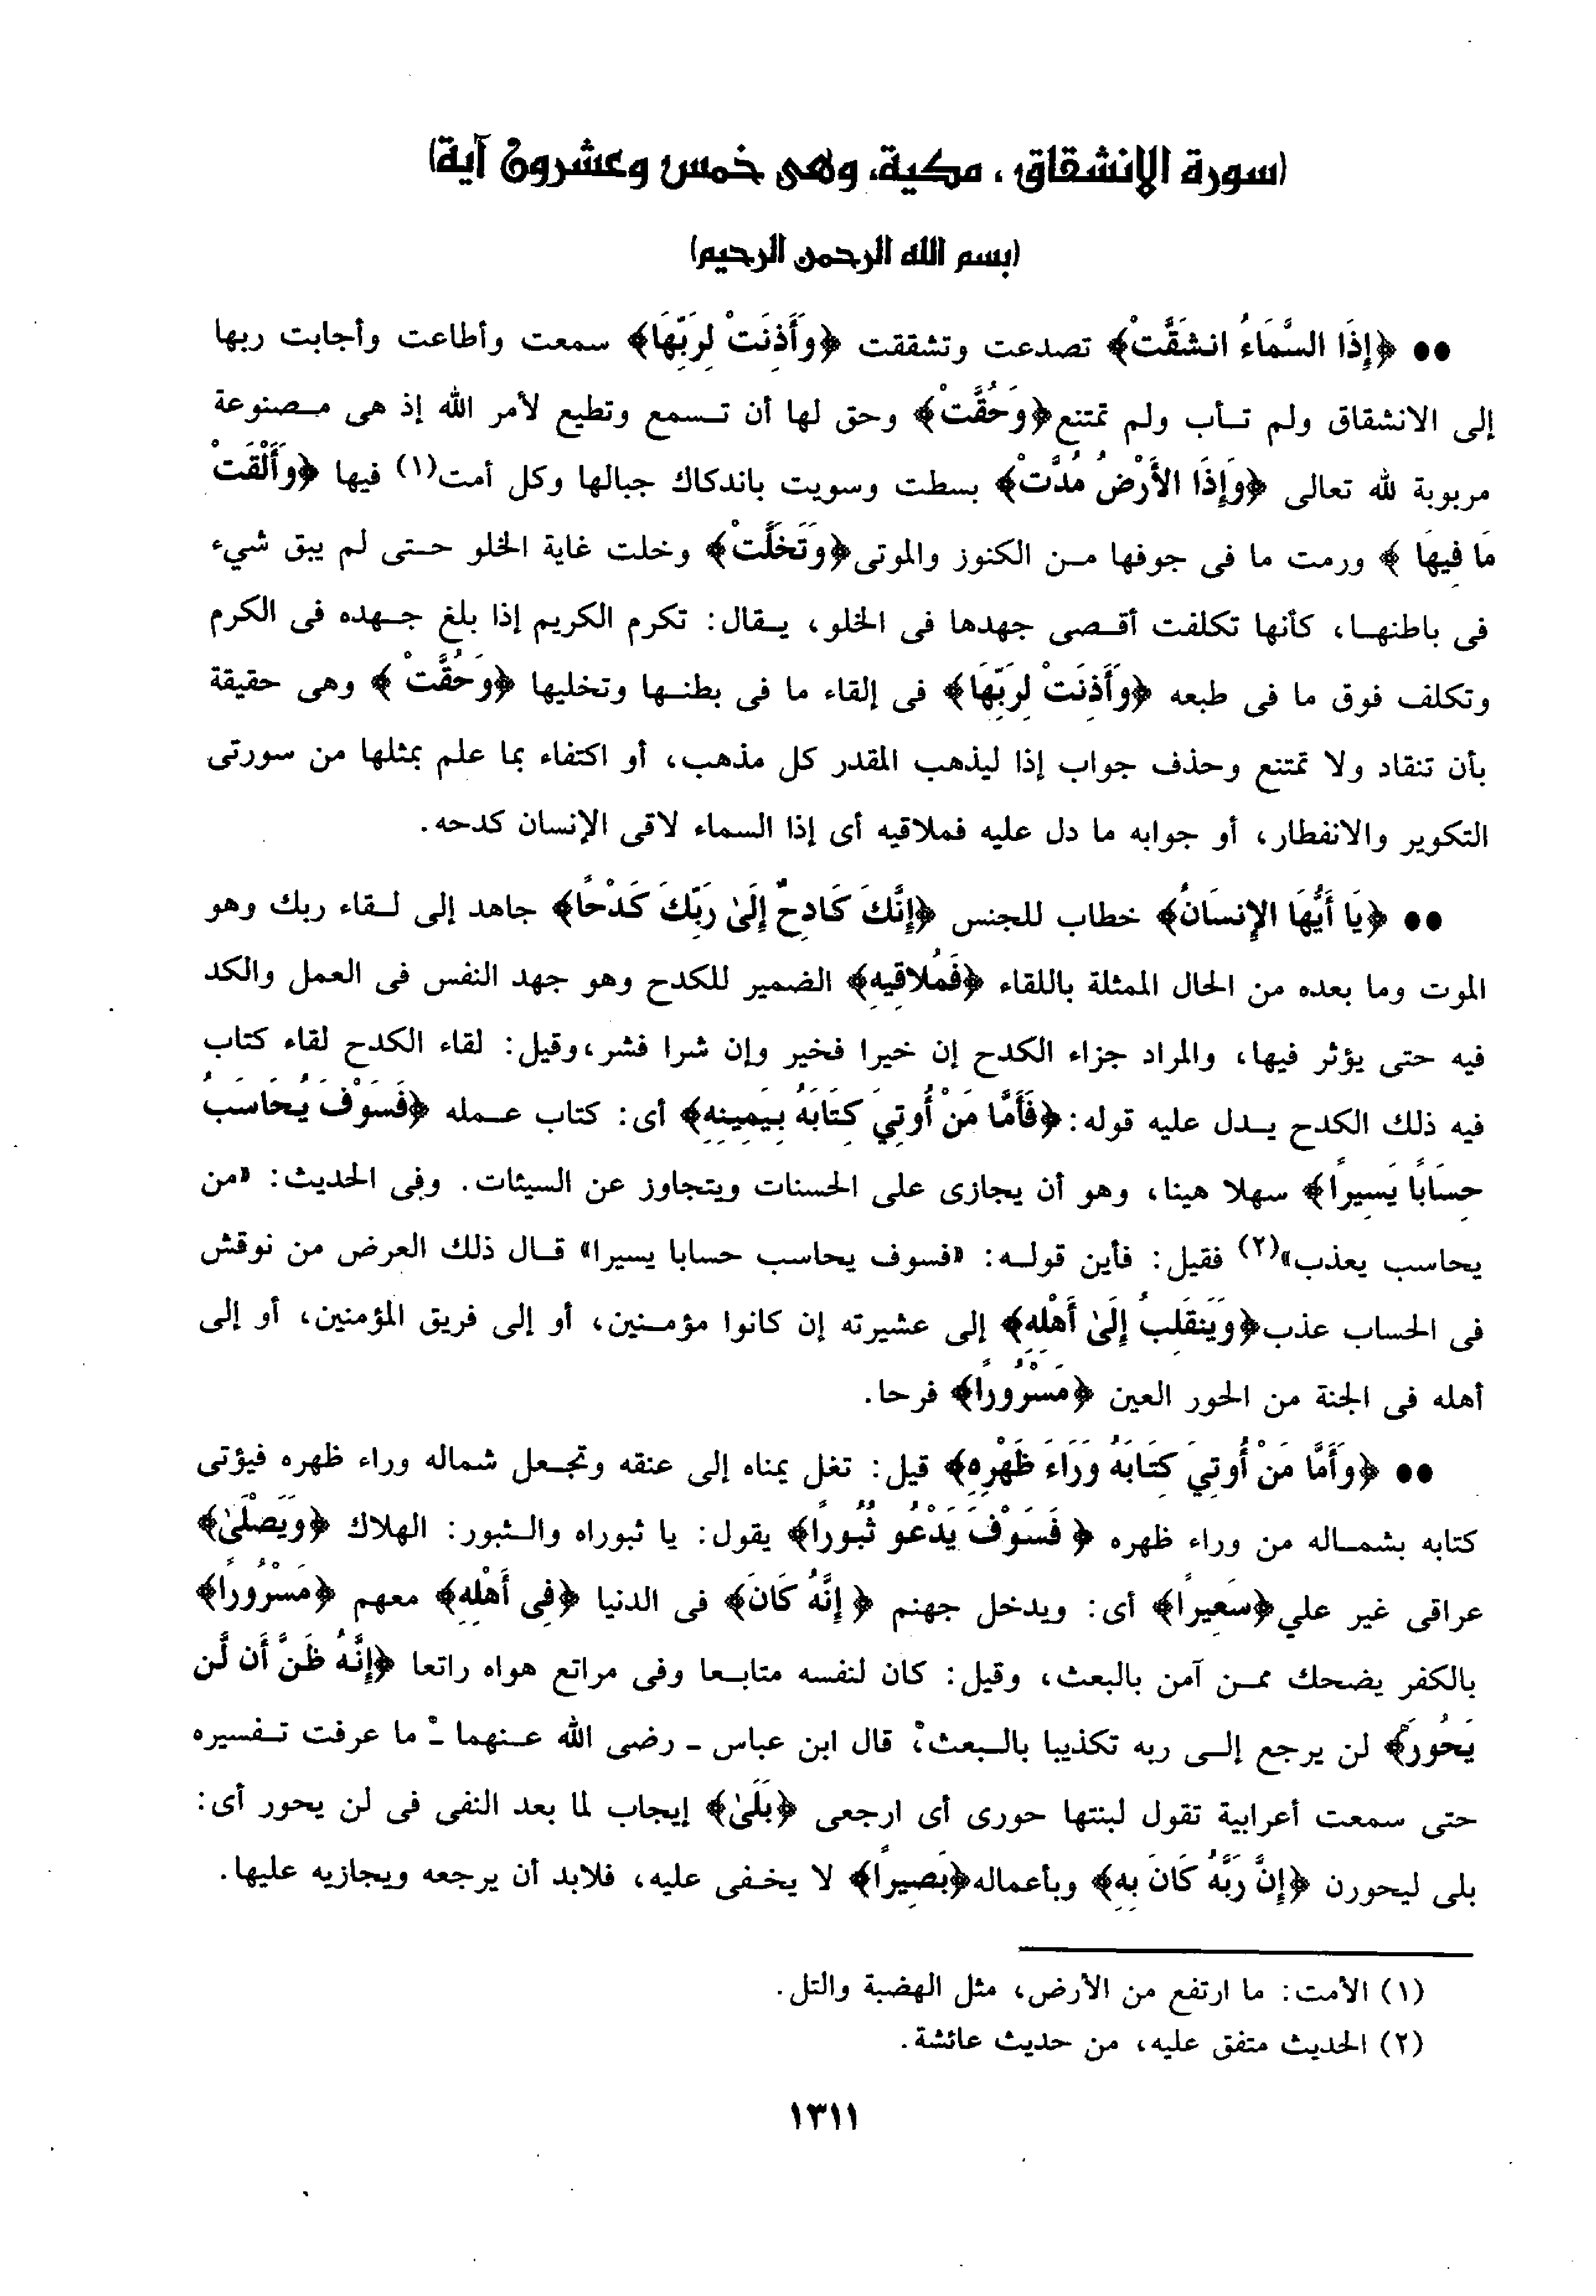 (سورة الانشقاق، مكية، وهى خمس وعشرون آية)
(بسم الله الرحمن الرحيم)
●● ﴿إِذَا السَّمَاءُ انشَقَّتْ﴾ تصدعت وتشققت ﴿وَأَذِنَتْ لِرَبِّهَا﴾ سمعت وأطاعت وأجابت ربها
إلى الانشقاق ولم تأب ولم تمتنع ﴿وَحُقَّتْ﴾ وحق لها أن تسمع وتطيع لأمر الله إذ هى مصنوعة
مربوبة لله تعالى ﴿وَإِذَا الأَرْضُ مُدَّتْ﴾ بسطت وسويت باندكاك جبالها وكل أمت(١) فيها ﴿وَأَلْقَتْ
مَا فِيهَا ﴾ ورمت ما فى جوفها من الكنوز والموتى ﴿وَتَخَلَّتْ﴾ وخلت غاية الخلو حتى لم يبق شيء
فى باطنها، كأنها تكلفت أقصى جهدها فى الخلو، يقال: تكرم الكريم إذا بلغ جهده فى الكرم
وتكلف فوق ما فى طبعه ﴿وَأَذِنَتْ لِرَبِّهَا﴾ فى إلقاء ما فى بطنها وتخليها ﴿وَحُقَّتْ ﴾ وهى حقيقة
بأن تنقاد ولا تمتنع وحذف جواب إذا ليذهب المقدر كل مذهب، أو اكتفاء بما علم بمثلها من سورتى
التكوير والانفطار، أو جوابه ما دل عليه فملاقيه أى إذا السماء لاقى الإنسان كدحه.
●● ﴿يَا أَيُّهَا الإِنسَانُ﴾ خطاب للجنس ﴿إِنَّكَ كَادِحٌ إِلَىٰ رَبِّكَ كَدْحًا﴾ جاهد إلى لقاء ربك وهو
الموت وما بعده من الحال الممثلة باللقاء ﴿فَمُلاقِيهِ﴾ الضمير للكدح وهو جهد النفس فى العمل والكد
فيه حتى يؤثر فيها، والمراد جزاء الكدح إن خيرا فخير وإن شرا فشر، وقيل: لقاء الكدح لقاء كتاب
فيه ذلك الكدح يدل عليه قوله: ﴿فَأَمَّا مَنْ أُوتِيَ كِتَابَهُ بِيَمِينِهِ﴾ أى: كتاب عمله ﴿فَسَوْفَ يُحَاسَبُ
حِسَابًا يَسِيرًا﴾ سهلا هينا، وهو أن يجازى على الحسنات ويتجاوز عن السيئات. وفى الحديث: «من
يحاسب يعذب»(٢) فقيل: فأين قوله: «فسوف يحاسب حسابا يسيرا» قال ذلك العرض من نوقش
فى الحساب عذب ﴿وَيَنقَلِبُ إِلَىٰ أَهْلِهِ﴾ إلى عشيرته إن كانوا مؤمنين، أو إلى فريق المؤمنين، أو إلى
أهله فى الجنة من الحور العين ﴿مَسْرُورًا﴾ فرحا.
●● ﴿وَأَمَّا مَنْ أُوتِيَ كِتَابَهُ وَرَاءَ ظَهْرِهِ﴾ قيل: تغل يمناه إلى عنقه وتجعل شماله وراء ظهره فيؤتى
كتابه بشماله من وراء ظهره ﴿ فَسَوْفَ يَدْعُو ثُبُورًا﴾ يقول: يا ثبوراه والثبور: الهلاك ﴿وَيَصْلَىٰ﴾
عراقى غير علي ﴿سَعِيرًا﴾ أى: ويدخل جهنم ﴿ إِنَّهُ كَانَ﴾ فى الدنيا ﴿فِي أَهْلِهِ﴾ معهم ﴿مَسْرُورًا﴾
بالكفر يضحك ممن آمن بالبعث، وقيل: كان لنفسه متابعا وفى مراتع هواه راتعا ﴿إِنَّهُ ظَنَّ أَن لَّن
يَحُورَ﴾ لن يرجع إلى ربه تكذيبا بالبعث، قال ابن عباس - رضى الله عنهما - ما عرفت تفسيره
حتى سمعت أعرابية تقول لبنتها حورى أى ارجعى ﴿بَلَىٰ﴾ إيجاب لما بعد النفى فى لن يحور أى:
بلى ليحورن ﴿إِنَّ رَبَّهُ كَانَ بِهِ﴾ وبأعماله ﴿بَصِيرًا﴾ لا يخفى عليه، فلابد أن يرجعه ويجازيه عليها.
(١) الأمت: ما ارتفع من الأرض، مثل الهضبة والتل.
(٢) الحديث متفق عليه، من حديث عائشة.
١٣١١